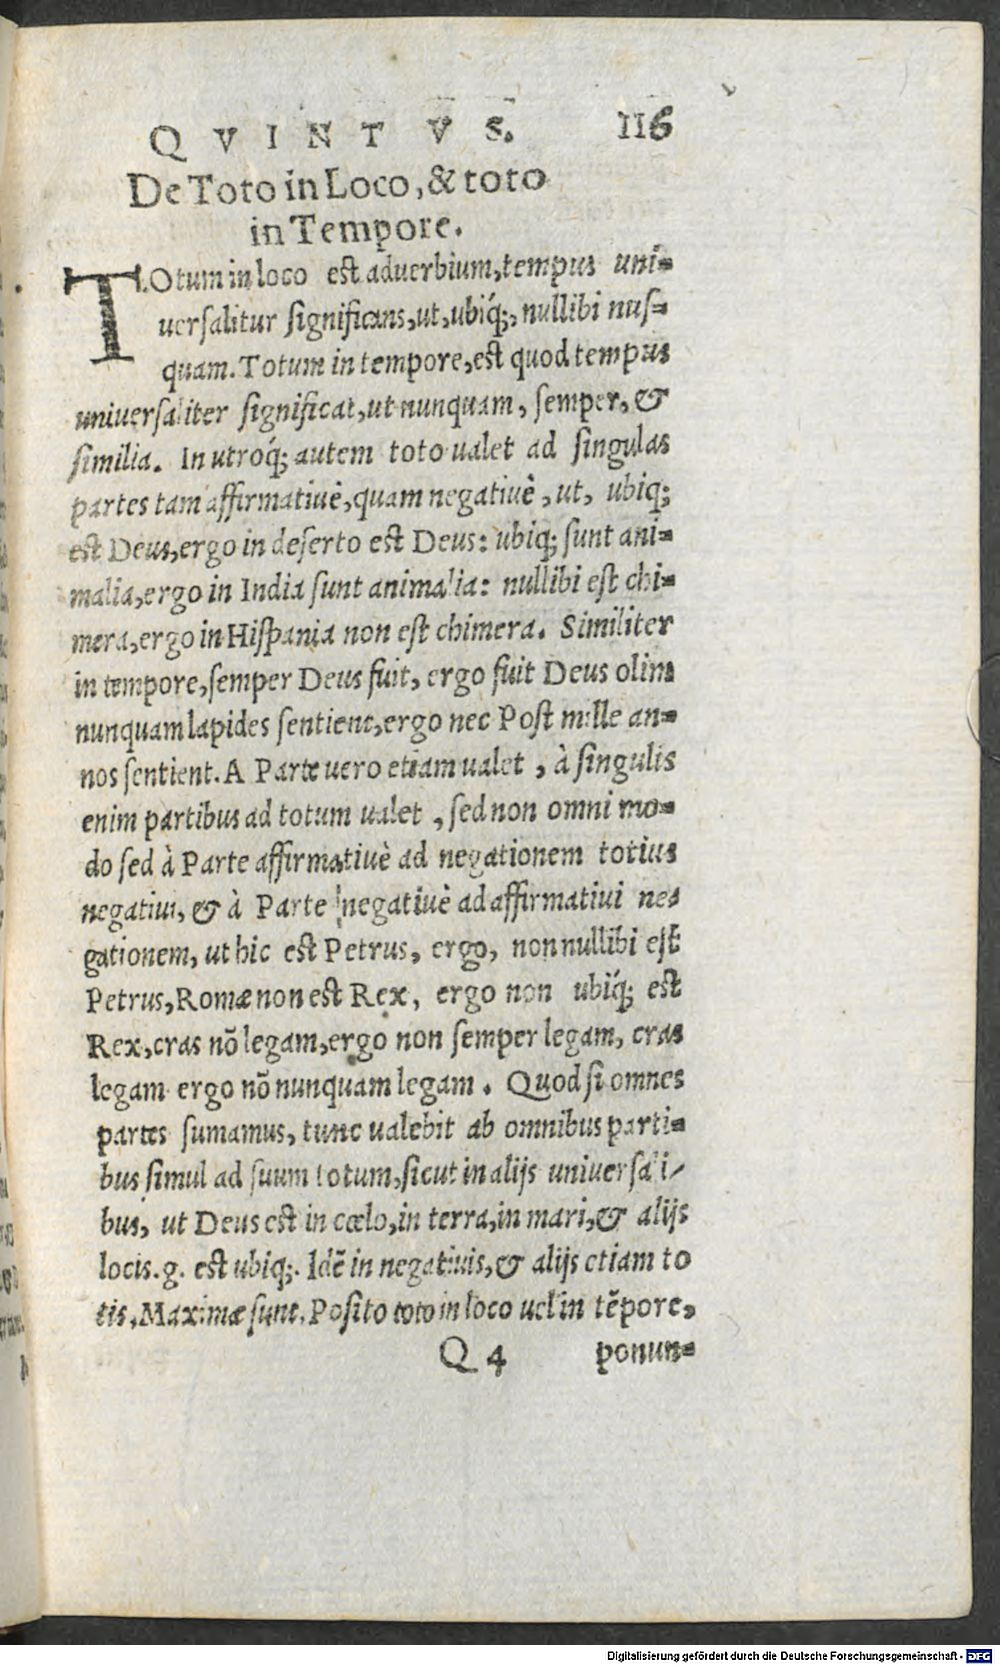 QVINTVS. 116
De Toto in Loco, & toto
in Tempore.
TOtum in loco est aduerbium, tempus uni-
uersalitur significans, ut, ubiq́;, nullibi nus-
quam. Totum in tempore, est quod tempus
uniuersaliter significat, ut nunquam, semper, &
similia. In utroq́; autem toto ualet ad singulas
partes tam affirmatiuè, quam negatiuè, ut, ubiq;
est Deus, ergo in deserto est Deus: ubiq; sunt ani-
malia, ergo in India sunt animalia: nullibi est chi-
mera, ergo in Hispania non est chimera. Similiter
in tempore, semper Deus fuit, ergo fuit Deus olim
nunquam lapides sentient, ergo nec Post mille an-
nos sentient. A Parte uero etiam ualet, à singulis
enim partibus ad totum ualet, sed non omni mo-
do sed à Parte affirmatiuè ad negationem totius
negatiui, & à Parte negatiuè ad affirmatiui ne-
gationem, ut hic est Petrus, ergo, non nullibi est
Petrus, Romæ non est Rex, ergo non ubiq́; est
Rex, cras nō legam, ergo non semper legam, cras
legam ergo nō nunquam legam. Quod si omnes
partes sumamus, tunc ualebit ab omnibus parti-
bus simul ad suum totum, sicut in alijs uniuersali-
bus, ut Deus est in cœlo, in terra, in mari, & alijs
locis. g. est ubiq;. Idē in negatiuis, & alijs etiam to
tis, Maximæ sunt. Posito toto in loco uel in tēpore,
Q 4 ponun-
Digitalisierung gefördert durch die Deutsche Forschungsgemeinschaft - DFG